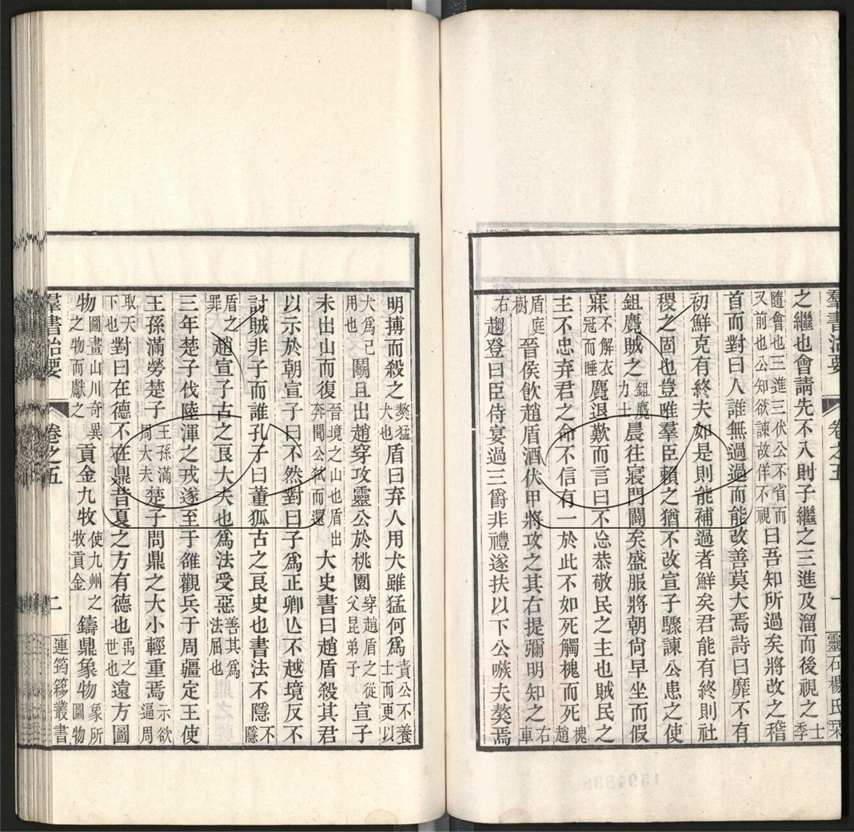 羣書治要 卷之五 一 靈石楊氏栞
之繼也會請先不入則子繼之三進及溜而後視之士季
隨會也三進三伏公不省而又前也公知欲諫故佯不視曰吾知所過矣將改之稽
首而對曰人誰無過過而能改善莫大焉詩曰靡不有
初鮮克有終夫如是則能補過者鮮矣君能有終則社
稷之固也豈唯羣臣賴之猶不改宣子驟諫公患之使
鉏麑賊之鉏麑力士晨往寢門闢矣盛服將朝尙早坐而假
寐不解衣冠而睡麑退歎而言曰不忘恭敬民之主也賊民之
主不忠弃君之命不信有一於此不如死觸槐而死槐趙
盾庭樹晉侯飮趙盾酒伏甲將攻之其右提彌明知之右車
右趨登曰臣侍宴過三爵非禮遂扶以下公嗾夫獒焉
明搏而殺之獒猛犬也盾曰弃人用犬雖猛何爲責公不養士而更以
犬爲己用也鬭且出趙穿攻靈公於桃園穿趙盾之從父昆弟子宣子
未出山而復晉境之山也盾出奔聞公弒而還大史書曰趙盾殺其君
以示於朝宣子曰不然對曰子爲正卿亾不越境反不
討賊非子而誰孔子曰董狐古之良史也書法不隱不隱
盾之罪趙宣子古之良大夫也爲法受惡善其爲法屈也
三年楚子伐陸渾之戎遂至于雒觀兵于周疆定王使
王孫滿勞楚子王孫滿周大夫楚子問鼎之大小輕重焉示欲逼周
取天下也對曰在德不在鼎昔夏之方有德也禹之世也遠方圖
物圖畫山川奇異之物而獻之貢金九牧使九州之牧貢金鑄鼎象物象所圖物
羣書治要 卷之五 二 連筠簃叢書